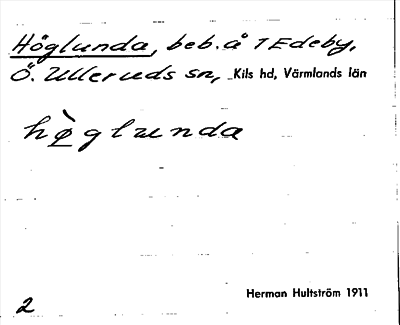 Höglunda, beb. å 1 Edeby,
Ö. Ulleruds sn, Kils hd, Värmlands län
hø̀glunda
Herman Hultström 1911
2